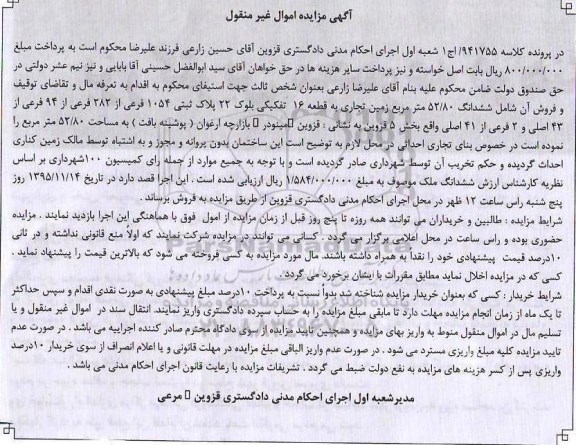 آگهی مزایده اموال غیر منقول
در پرونده کلاسه ۹۴۱۷۵۵/اج۱ شعبه اول اجرای احکام مدنی دادگستری قزوین آقای حسین زارعی فرزند علیرضا محکوم است به پرداخت مبلغ
۸۰۰/۰۰۰/۰۰۰ ریال بابت اصل خواسته و نیز پرداخت سایر هزینه ها در حق خواهان آقای سید ابوالفضل حسینی آقا بابایی و نیز نیم عشر دولتی در
حق صندوق دولت ضامن محکوم علیه بنام آقای علیرضا زارعی بعنوان شخص ثالث جهت استیفای محکوم به اقدام به تعرفه مال و تقاضای توقیف
و فروش آن شامل ششدانگ ۵۲/۸۰ متر مربع زمین تجاری به قطعه ۱۶ تفکیکی بلوک ۲۲ پلاک ثبتی ۱۰۵۴ فرعی از ۲۸۲ فرعی از ۹۴ فرعی از
۴۳ اصلی و ۲ فرعی از ۴۱ اصلی واقع بخش ۵ قزوین به نشانی : قزوین مینودر بازارچه ارغوان ( پوشینه بافت ) به مساحت ۵۲/۸۰ متر مربع را
نموده است در خصوص بنای تجاری احداثی در محل لازم به توضیح است این ساختمان بدون پروانه و مجوز و به اشتباه توسط مالک زمین کناری
احداث گردیده و حکم تخریب آن توسط شهرداری صادر گردیده است و با توجه به جمیع موارد از جمله رای کمیسیون ۱۰۰شهرداری بر اساس
نظریه کارشناس ارزش ششدانگ ملک موصوف به مبلغ ۱/۵۸۴/۰۰۰/۰۰۰ ریال ارزیابی شده است . این اجرا قصد دارد در تاریخ ۱۳۹۵/۱۱/۱۴ روز
پنج شنبه راس ساعت ۱۲ ظهر در محل اجرای احکام مدنی دادگستری قزوین از طریق مزایده به فروش برساند .
شرایط مزایده : طالبین و خریداران می توانند همه روزه تا پنج روز قبل از زمان مزایده از اموال فوق با هماهنگی این اجرا بازدید نمایند . مزایده
حضوری بوده و راس ساعت در محل اعلامی برگزار می گردد . کسانی می توانند در مزایده شرکت نمایند که اولاً منع قانونی نداشته و در ثانی
۱۰درصد قیمت پیشنهادی خود را نقداً به همراه داشته باشند. مال مورد مزایده به کسی فروخته می شود که بالاترین قیمت را پیشنهاد نماید .
کسی که در مزایده اخلال نماید مطابق مقررات با ایشان برخورد می گردد .
شرایط خریدار : کسی که بعنوان خریدار مزایده شناخته شد بدواً نسبت به پرداخت ۱۰درصد مبلغ پیشنهادی به صورت نقدی اقدام و سپس حداکثر
تا یک ماه از زمان انجام مزایده مهلت دارد تا مابقی مبلغ مزایده را به حساب سپرده دادگستری واریز نمایند. انتقال سند در اموال غیر منقول و یا
تسلیم مال در اموال منقول منوط به واریز بهای مزایده و همچنین تایید مزایده از سوی دادگاه محترم صادر کننده اجراییه می باشد . در صورت عدم
تایید مزایده کلیه مبلغ واریزی مسترد می شود . در صورت عدم واریز الباقی مبلغ مزایده در مهلت قانونی و یا اعلام انصراف از سوی خریدار ۱۰درصد
واریزی پس از کسر هزینه های مزایده به نفع دولت ضبط می گردد . تشریفات مزایده با رعایت قانون اجرای احکام مدنی می باشد .
مدیرشعبه اول اجرای احکام مدنی دادگستری قزوین مرعی